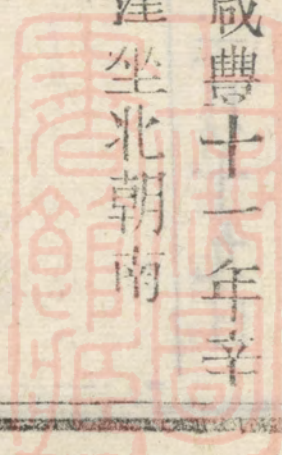 咸豐十一年辛
坐北朝南